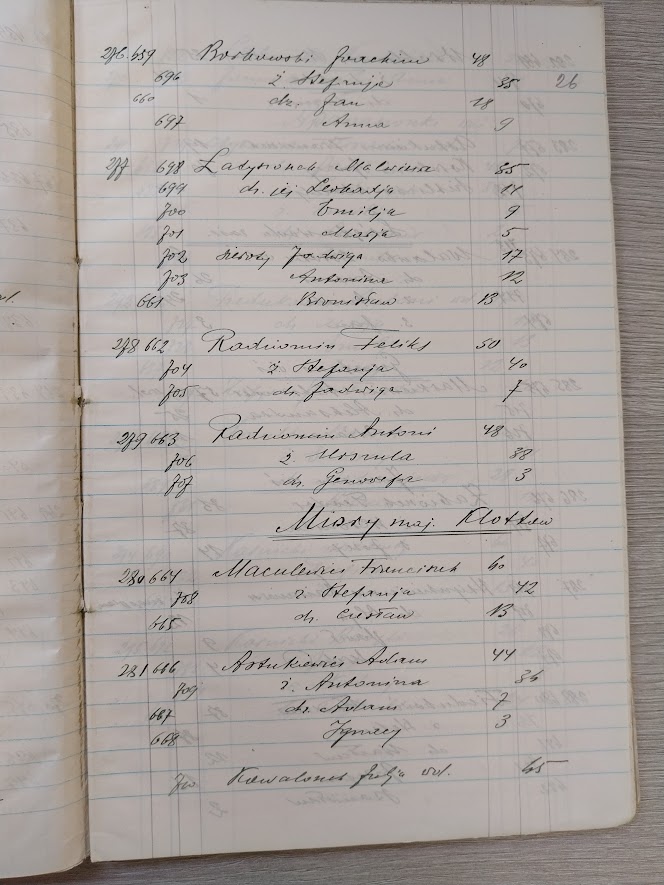 26
276 659 Borkowski Joachim 48
696 ż Stefanja 35
660 dz. Jan 18
697 Anna 9
277 698 Ładysionek Malwina 35
699 dz. jej Leokadja 11
700 Emilja 9
701 Marja 5
702 sieroty Jadwiga 17
703 Antonina 12
661 Bronisław 13
278 662 Radziomin Feliks 50
704 ż Stefanja 40
705 dz. Jadwiga 7
279 663 Radziomin Antoni 48
706 ż Urszula 38
707 dz. Genowefa 3
maj.
280 664 Maculewicz Franciszek 60
708 ż Stefanja 42
665 dz. Czesław 13
281 666 Adam 44
709 ż. Antonina 36
667 dz. Adam 7
668 Ignacy 3
710 Kowalonek Julja wd. 65